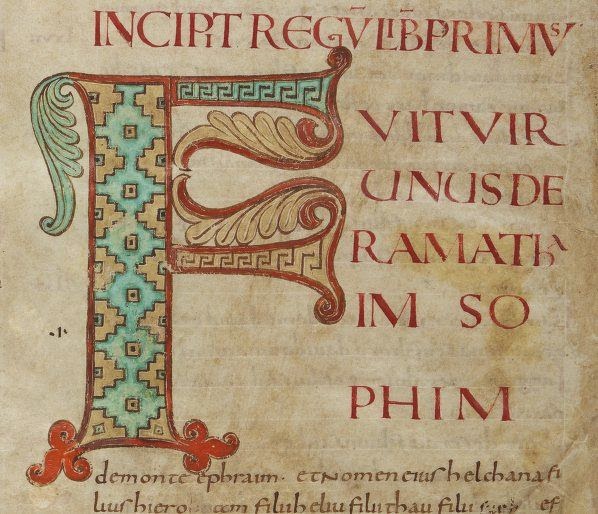 INCIPIT REGV̄ LIB̄ PRIMVS
F
VIT VIR
UNUS DE
RAMATH
IM SO
PHIM
·1·
demonte ephraim· et nomen eius helchana fi
lius hiero filii heliu filii thau filii